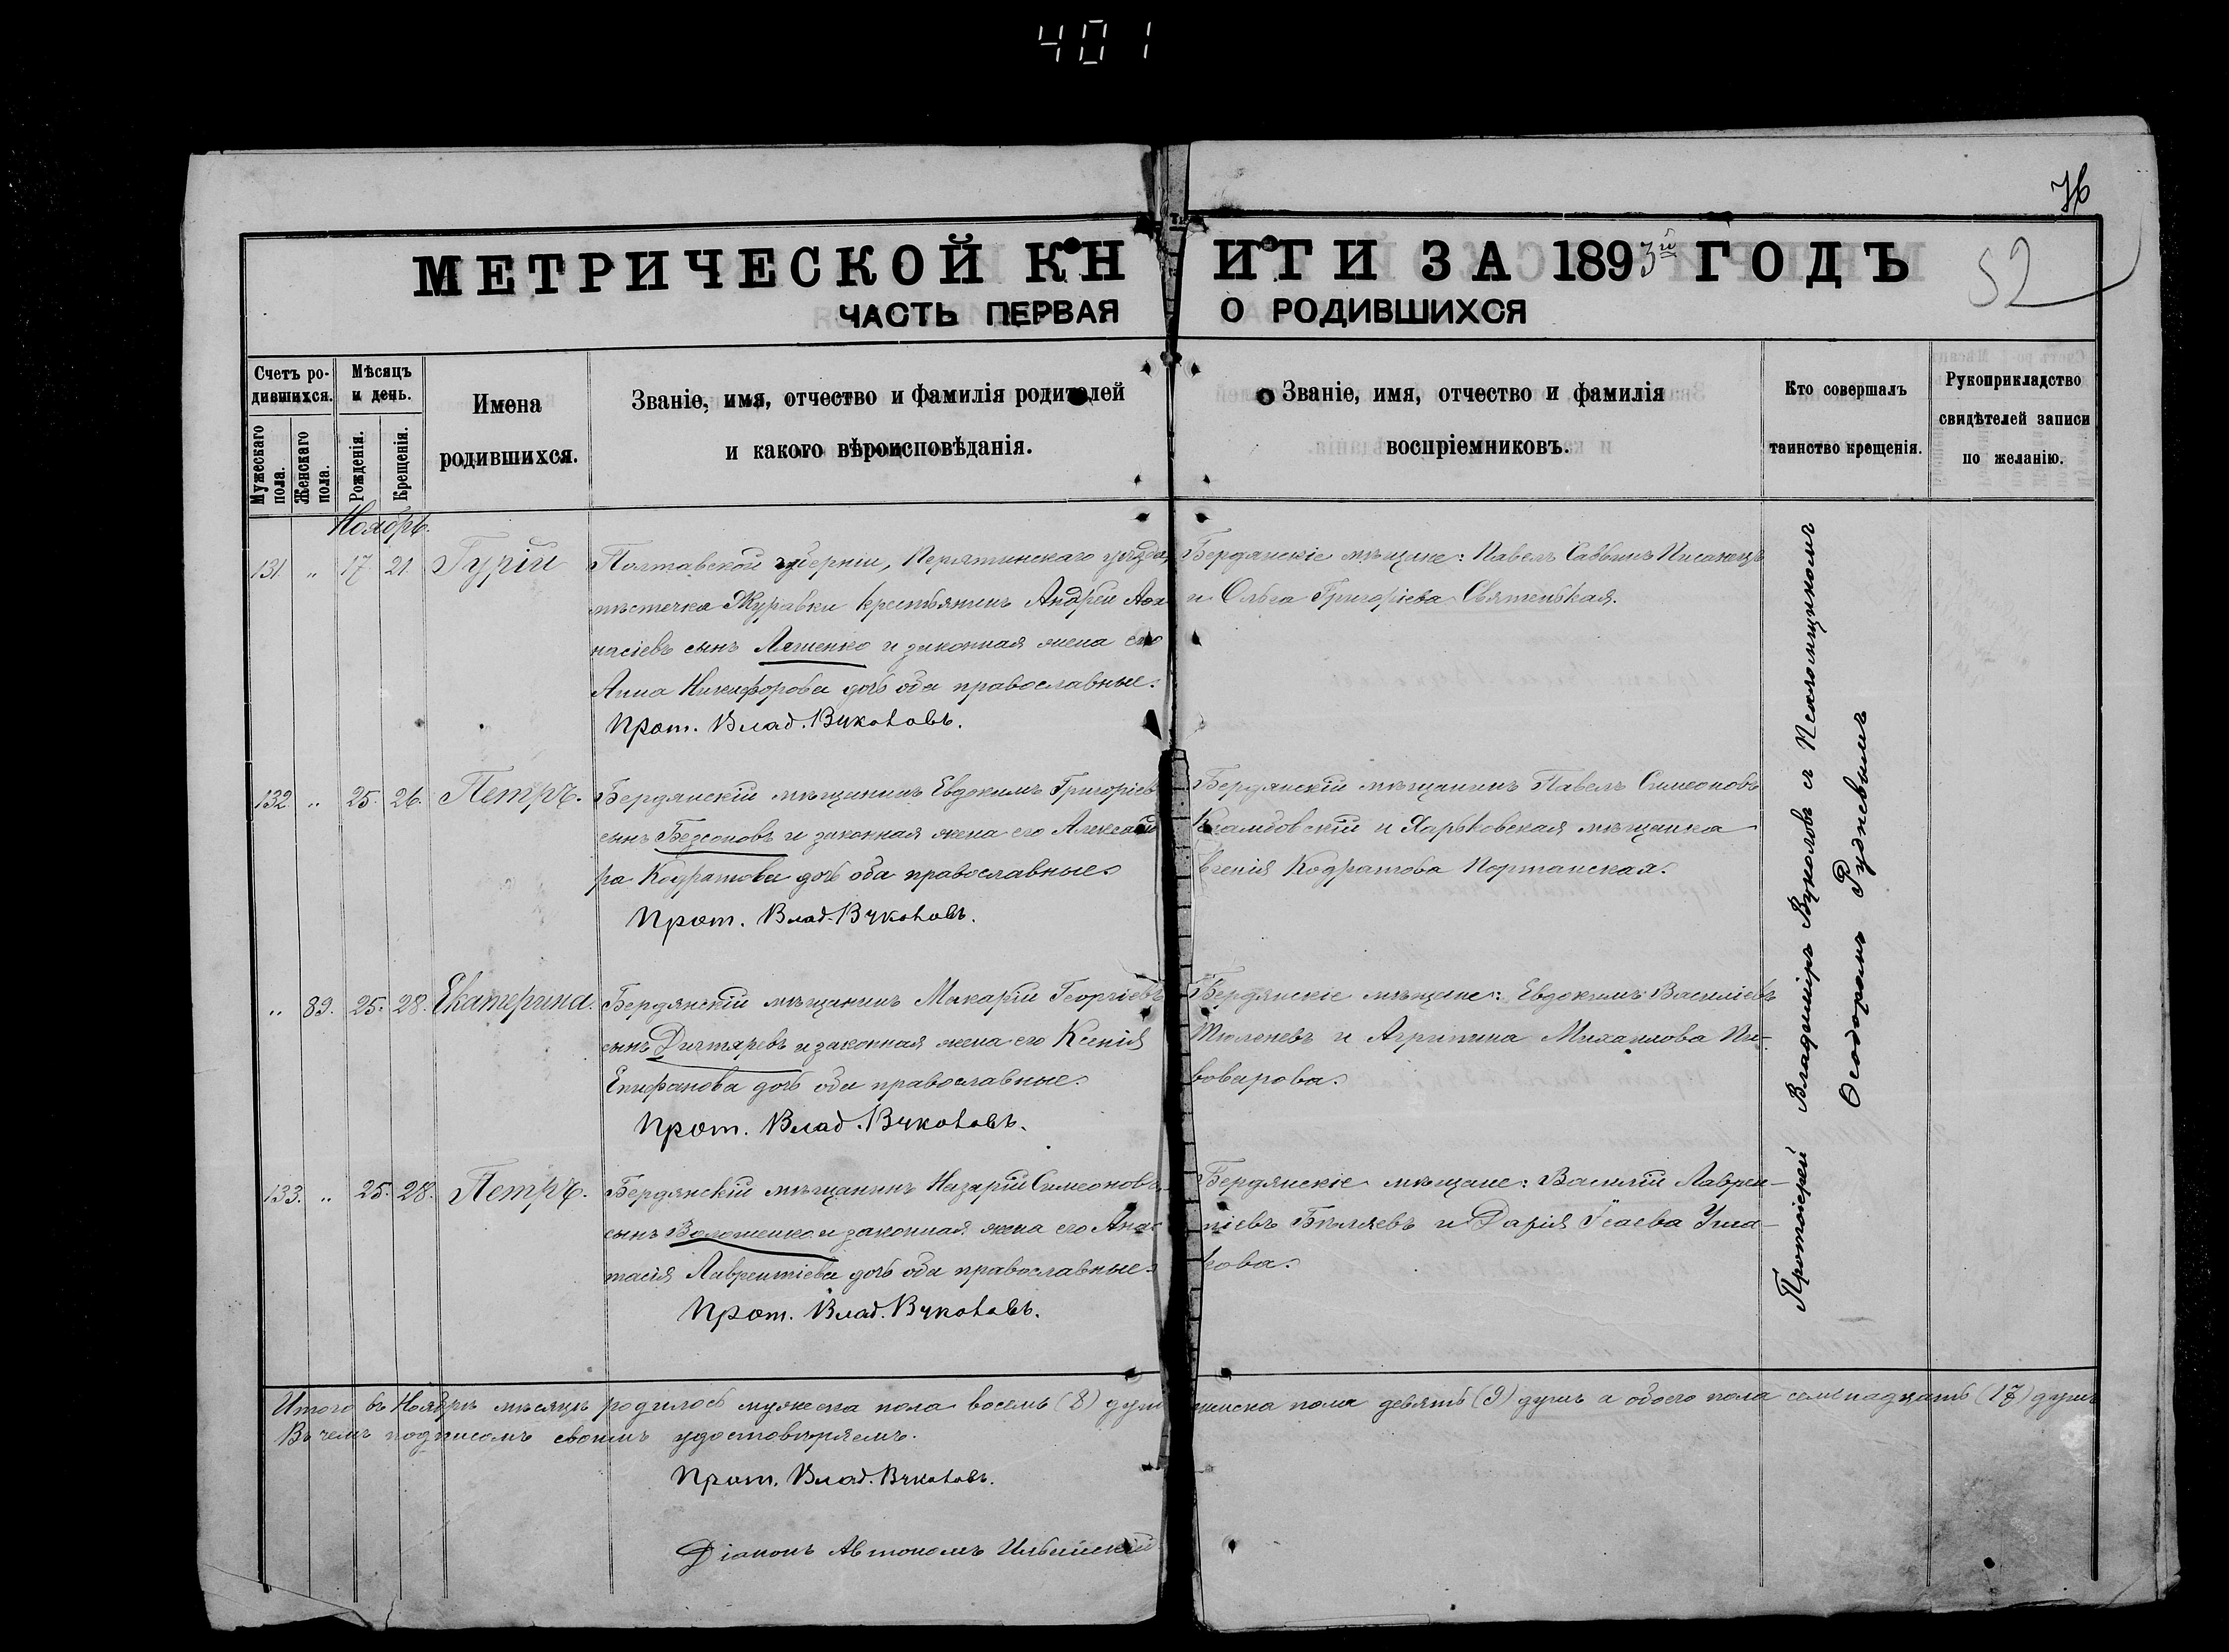 401
76
МЕТРИЧЕСКОЙ КНИГИ ЗА 1893й ГОДЪ
52
ЧАСТЬ ПЕРВАЯ О РОДИВШИХСЯ
Счетъ ро-
дившихся.
Мужескаго пола.
Женскаго пола.
Мѣсяцъ
и день.
Рожденія.
Крещенія.
Имена
родившихся.
Званіе, имя, отчество и фамилія родителей
и какого вѣроисповѣданія.
Званіе, имя, отчество и фамилія
воспріемниковъ.
Кто совершалъ
таинство крещенія.
Рукоприкладство
свидѣтелей записи
по желанію.
Ноябрь.
131 „ 17 21 Гурій
Полтавской губерніи, Пирятинскаго уѣзда,
мѣстечка Журавки крестьянинъ Андрей Аѳа
насіевъ сынъ Ляшенко и законная жена его
Анна Никифорова дочь оба православные.
Прот. Влад. Вуколовъ.
Бердянскіе мѣщане: Павелъ Саввинъ Писанецъ
и Ольга Григоріева Святенькая.
132 „ 25. 26. Петръ.
Бердянскій мѣщанинъ Евдокимъ Григоріевъ
сынъ Безсоновъ и законная жена его Александ
ра Кодратова дочь оба православные.
Прот. Влад. Вуколовъ.
Бердянскій мѣщанинъ Павелъ Симеоновъ
и Харьковская мѣщанка
Кодратова Портанская.
„ 89. 25. 28. Екатерина.
Бердянскій мѣщанинъ Макарій Георгіевъ
сынъ Дихтяревъ и законная жена его Ксенія
Епифанова дочь оба православные.
Прот. Влад. Вуколовъ.
Бердянскіе мѣщане: Евдокимъ Василіевъ
Тюленевъ и Агрипина Михаилова Пи-
воварова.
133. „ 25. 28. Петръ.
Бердянскій мѣщанинъ Назарій Симеоновъ
сынъ Волошенко и законная жена его Анас
тасія Лаврентіева дочь оба православные.
Прот. Влад. Вуколовъ.
Бердянскіе мѣщане: Василій Лаврен-
тіевъ Бѣляевъ и Дарія Ісаева Уша-
кова.
Протоіерей Владиміръ Вуколовъ съ Псаломщикомъ
Ѳеодоромъ Рудневымъ
Итого въ Ноябрѣ мѣсяцѣ родилось мужеска пола восемь (8) душъ женска пола девять (9) душъ а обоего пола семнадцать (17) душъ
Въ чемъ подписомъ своимъ удостовѣряемъ.
Прот. Влад. Вуколовъ.
Діаконъ Автономъ